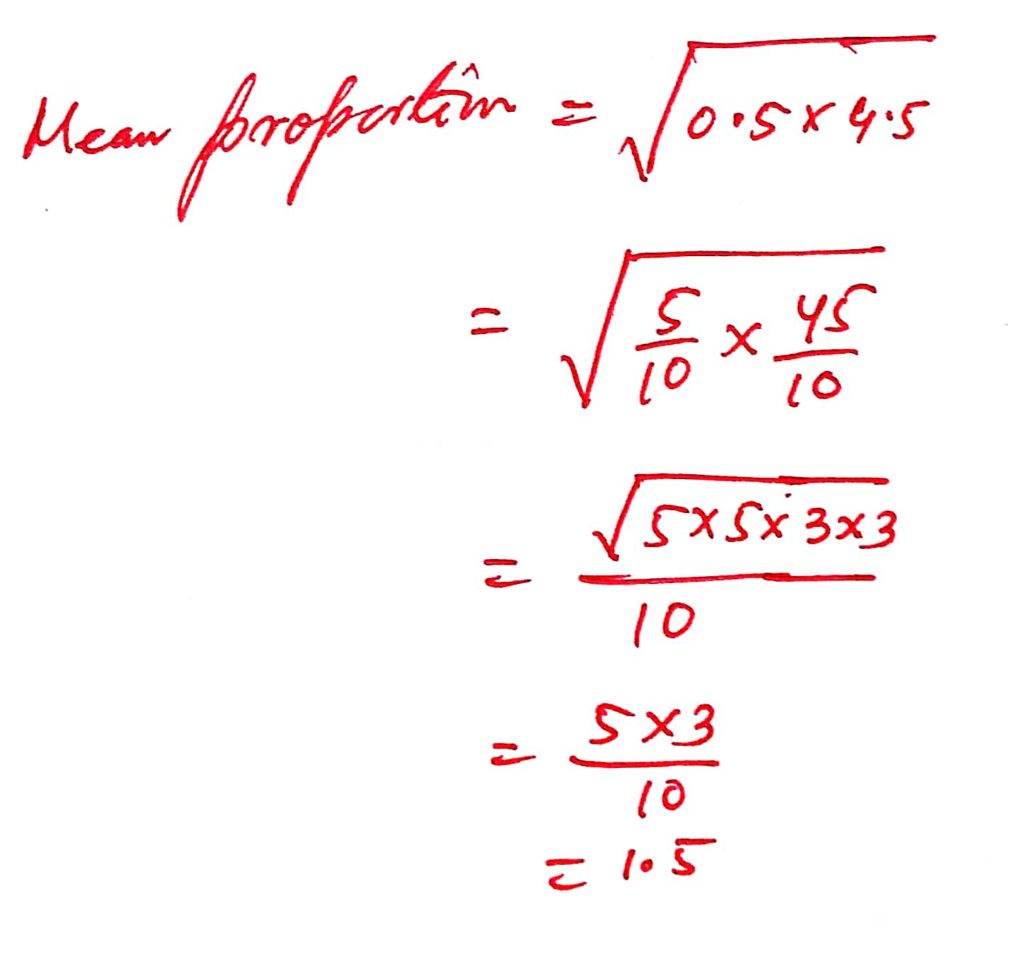 Mean proportion = √(0.5 × 4.5)
= √(5/10 × 45/10)
= √(5×5×3×3)/10
= 5×3/10
= 1.5